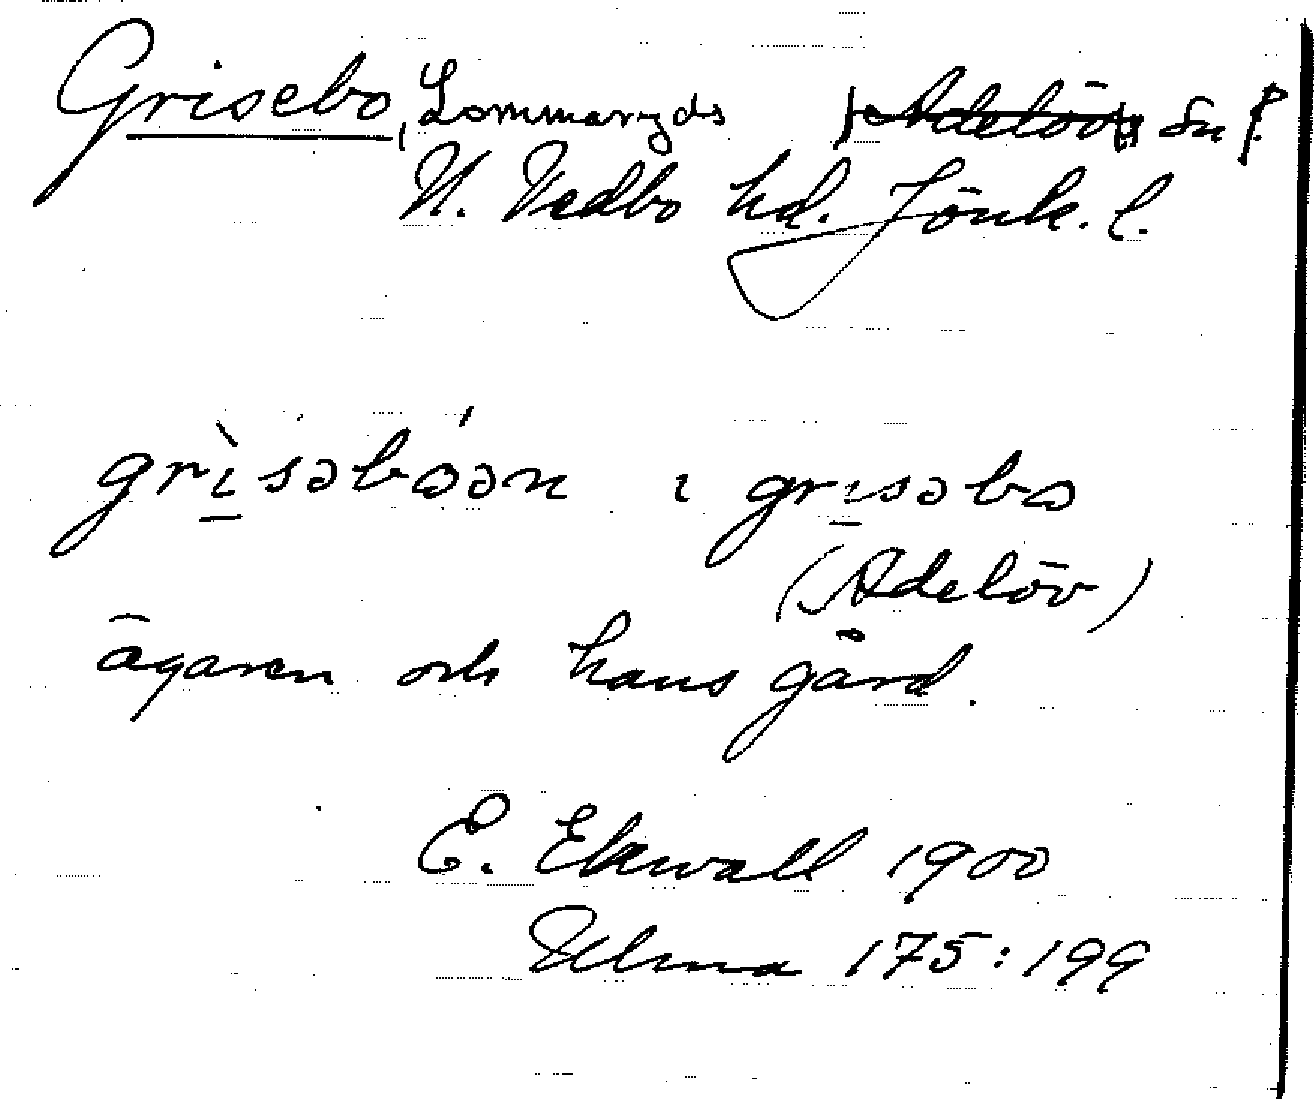 Grisebo, Lommaryds Adelövs sn
N. Vedbo hd. Jönk. l.
grìsəbóən ı grısəbo
(Adelöv)
ägaren och hans gård.
E. Ekwall 1900
Ulma 175:199